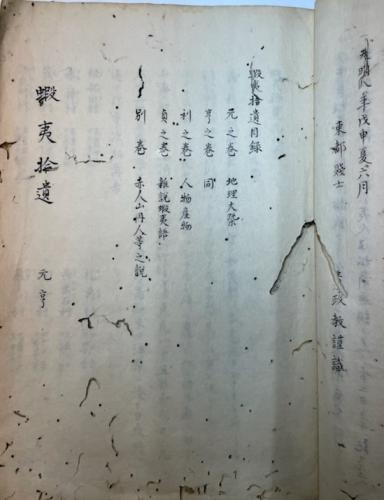 天明八年戊申夏六月
東都賤士 政教謹識
蝦夷拾遺目録
元之巻 地理大槩
亨之巻 同
利之巻 人物産物
貞之巻 雑説蝦夷語
別巻 赤人山丹人等之説
蝦夷拾遺 元亨